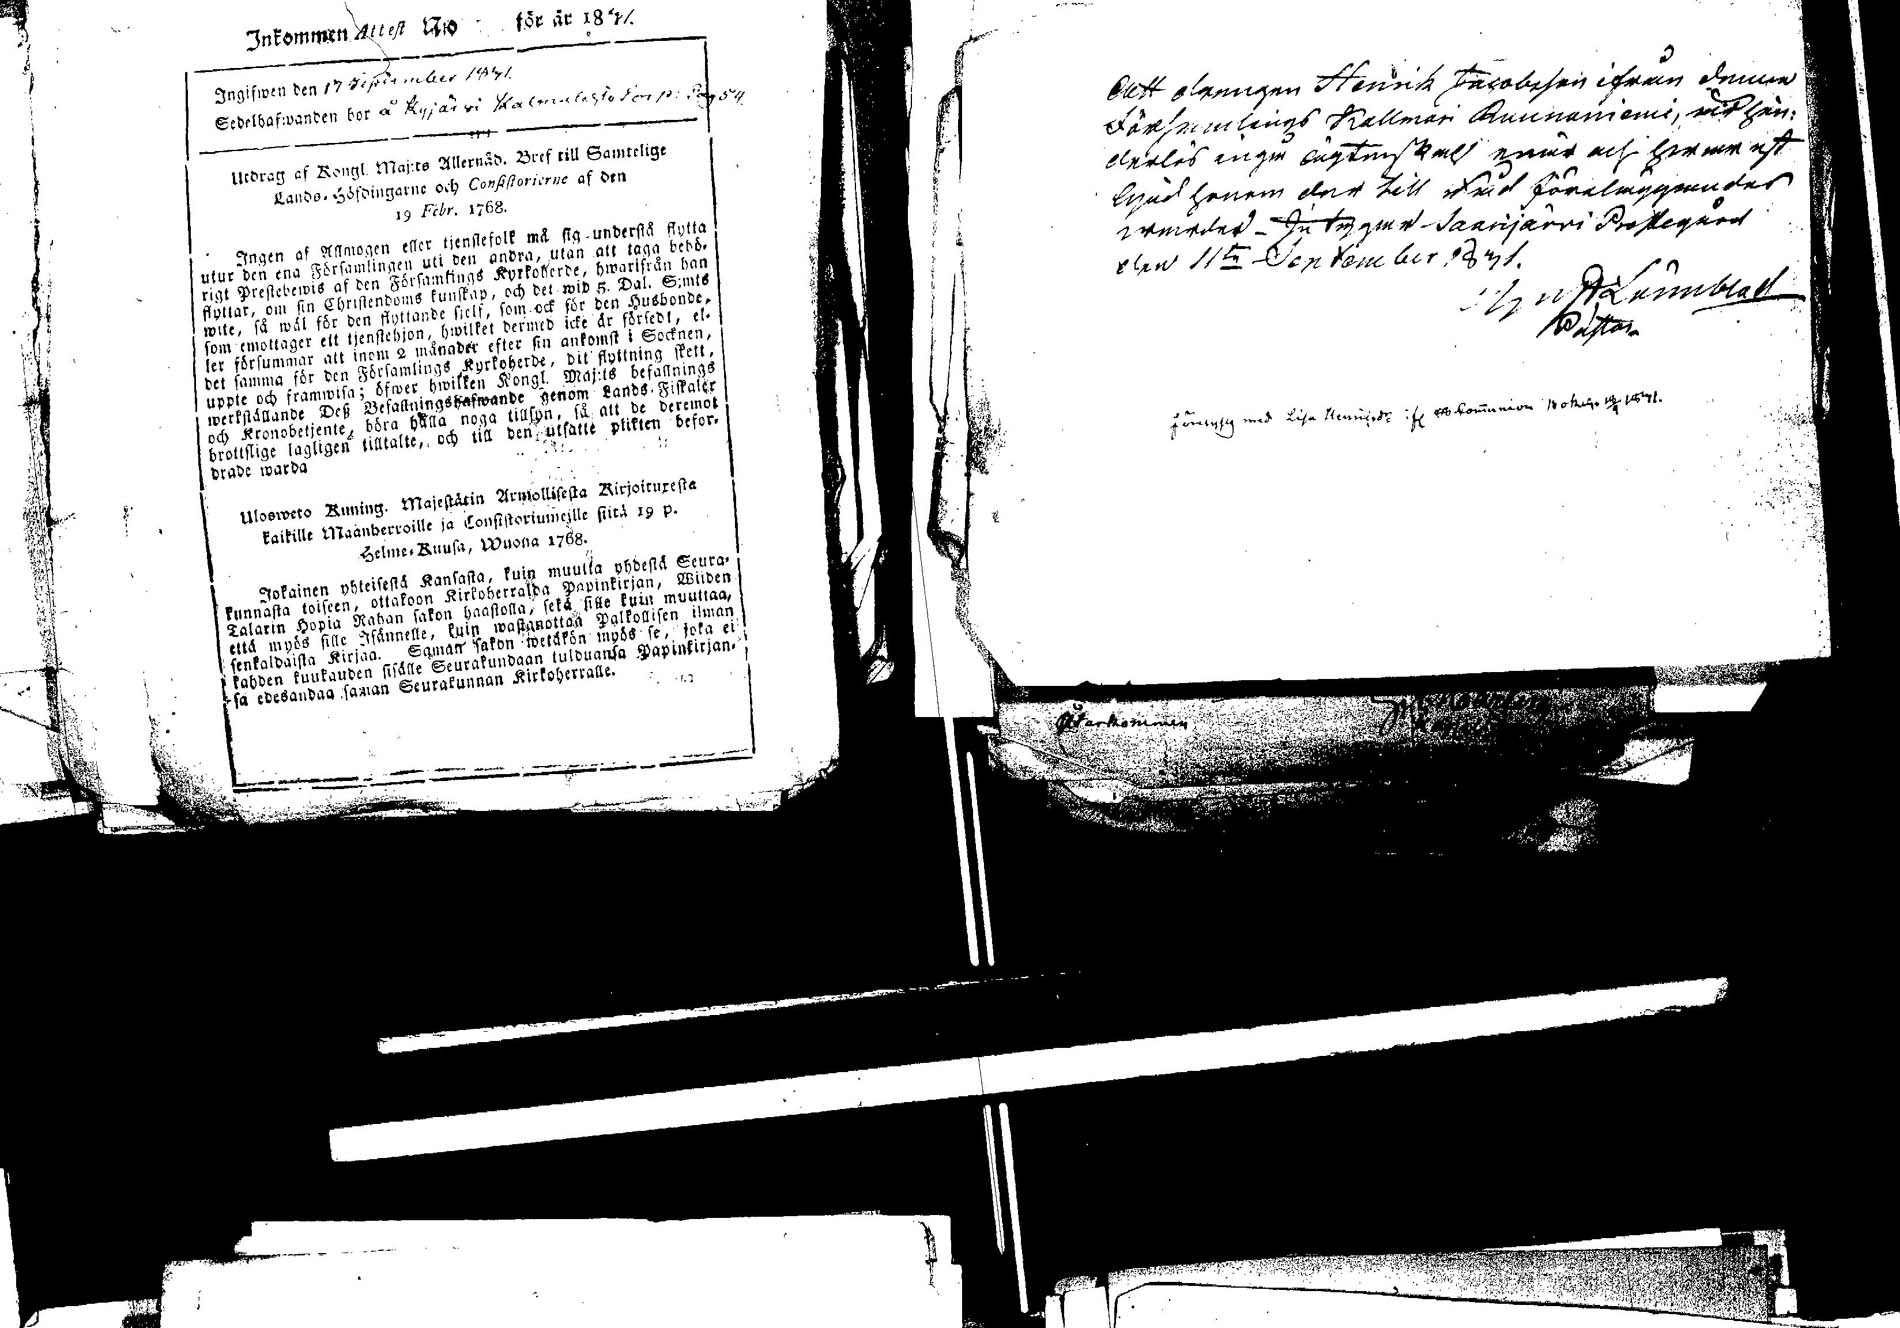 Inkommen Attest No för år 1841.
Ingifwen den 17 September 1841.
Sedelhafwanden bor å Kyjärvi
Utdrag af Kongl. Maj:ts Allernåd. Bref till Samtelige
Lands-Höfdingarne och Consistorierne af den
19 Febr. 1768.
Ingen af Allmogen eller tjenstefolk må sig understå flytta
utur den ena Församlingen uti den andra, utan att taga behö-
rigt Prestebewis af den Församlings Kyrkoherde, hwarifrån han
flyttar, om sin Christendoms kunskap, och det wid 5. Dal. S:mts
wite, så wäl för den flyttande sjelf, som ock för den Husbonde,
som emottager ett tjenstehjon, hwilket dermed icke är försedt, el-
ler försummar att inom 2 månader efter sin ankomst i Socknen,
det samma för den Församlings Kyrkoherde, dit flyttning skett,
uppte och framwisa; öfwer hwilken Kongl. Maj:ts befallnings
werkställande Deß Befallningshafwande genom Lands-Fiskaler
och Kronobetjente, böra hålla noga tillsyn, så att de deremot
brottslige lagligen tilltalte, och till den utsatte plikten befor-
drade warda
Ulosweto Kuning. Majestätin Armollisesta Kirjoituxesta
kaikille Maanherroille ja Consistoriumeille siitä 19 p.
Helme-Kuusa, Wuona 1768.
Jokainen yhteisestä Kansasta, kuin muutta yhdestä Seura-
kunnasta toiseen, ottakoon Kirkoherralda Papinkirjan, Wiiden
Talarin Hopia Rahan sakon haastolla, sekä sille kuin muuttaa,
että myös sille Isännelle, kuin wastanottaa Palkollisen ilman
senkaldaista Kirjaa. Saman sakon wetäkön myös se, joka ei
kahden kuukauden sisälle Seurakundaan tulduansa Papinkirjan-
sa edesandaa saman Seurakunnan Kirkoherralle.
Att drengen Henrik Jacobsson ifrån denna
Församlings Kallmari Ruunaniemi, är hin-
derlös ingå ägtenskap
lyud honom der till
Intygar Saarijärvi Prestegård
den 11te September 1841.
Lönnblad
Pastor
med Lisa Henrichsdr Communion Boken 1841.
Återkommen